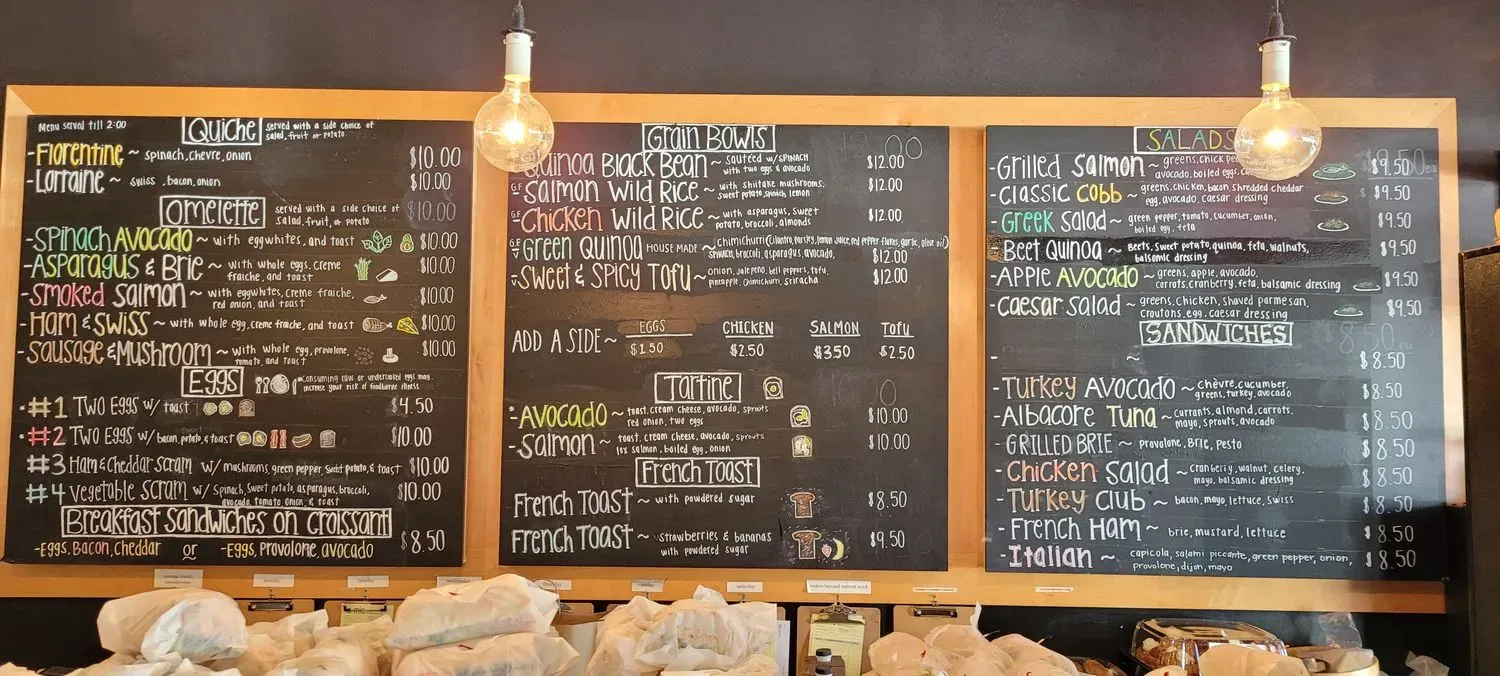 Menu served till 2:00
Quiche served with a side choice of
salad, fruit or potato
-Florentine ~ spinach, chevre, onion $10.00
-Lorraine ~ swiss, bacon, onion $10.00
Omelette served with a side choice of
salad, fruit, or potato $10.00
-Spinach Avocado ~ with eggwhites, and toast $10.00
-Asparagus & Brie ~ with whole eggs, creme
fraiche, and toast $10.00
-Smoked Salmon ~ with eggwhites, creme fraiche,
red onion, and toast $10.00
-Ham & Swiss ~ with whole egg, creme fraiche, and toast $10.00
-Sausage & Mushroom ~ with whole egg, provolone,
tomato, and toast $10.00
Eggs Consuming raw or undercooked eggs may
increase your risk of foodborne illness
#1 Two Eggs w/ toast $4.50
#2 Two Eggs w/ bacon, potato, & toast $10.00
#3 Ham & Cheddar Scram w/ mushrooms, green pepper, sweet potato, & toast $10.00
#4 Vegetable Scram w/ spinach, sweet potato, asparagus, broccoli,
avocado, tomato, onion, & toast $10.00
Breakfast Sandwiches on Croissant
-Eggs, Bacon, Cheddar or -Eggs, Provolone, avocado $8.50
Grain Bowls
Quinoa Black Bean ~ sauteed w/ spinach
with two eggs & avocado $12.00
G.F Salmon Wild Rice ~ with shiitake mushrooms,
sweet potato, spinach, lemon $12.00
G.F Chicken Wild Rice ~ with asparagus, sweet
potato, broccoli, almonds $12.00
G.F V Green Quinoa HOUSE MADE ~ chimichurri (cilantro, parsley, lemon juice, red pepper flakes, garlic, olive oil)
spinach, broccoli, asparagus, avocado, $12.00
V Sweet & Spicy Tofu ~ onion, jalepeno, bell peppers, tofu,
pineapple, chimichurri, sriracha $12.00
ADD A SIDE ~ EGGS CHICKEN SALMON Tofu
$1.50 $2.50 $3.50 $2.50
Tartine
-Avocado ~ toast, cream cheese, avocado, sprouts
red onion, two eggs $10.00
-Salmon ~ toast, cream cheese, avocado, sprouts
lox salmon, boiled egg, onion $10.00
French Toast
French Toast ~ with powdered sugar $8.50
French Toast ~ strawberries & bananas
with powdered sugar $9.50
SALADS
-Grilled Salmon ~ greens, chick
avocado, boiled eggs, $9.50
-Classic Cobb ~ greens, chicken, bacon, shredded cheddar
egg, avocado, caesar dressing $9.50
-Greek Salad ~ green pepper, tomato, cucumber, onion,
boiled egg, feta $9.50
-Beet Quinoa ~ Beets, sweet potato, quinoa, feta, walnuts,
balsamic dressing $9.50
-Apple Avocado ~ greens, apple, avocado,
carrots, cranberry, feta, balsamic dressing $9.50
-Caesar Salad ~ greens, chicken, shaved parmesan,
croutons, egg, caesar dressing $9.50
SANDWICHES
- ~ $8.50
-Turkey Avocado ~ chèvre, cucumber,
greens, turkey, avocado $8.50
-Albacore Tuna ~ currants, almond, carrots,
mayo, sprouts, avocado $8.50
-GRILLED BRIE ~ provolone, Brie, Pesto $8.50
-Chicken Salad ~ cranberry, walnut, celery,
mayo, balsamic dressing $8.50
-Turkey Club ~ bacon, mayo, lettuce, swiss $8.50
-French Ham ~ brie, mustard, lettuce $8.50
-Italian ~ capicola, salami piccante, green pepper, onion,
provolone, dijon, mayo $8.50